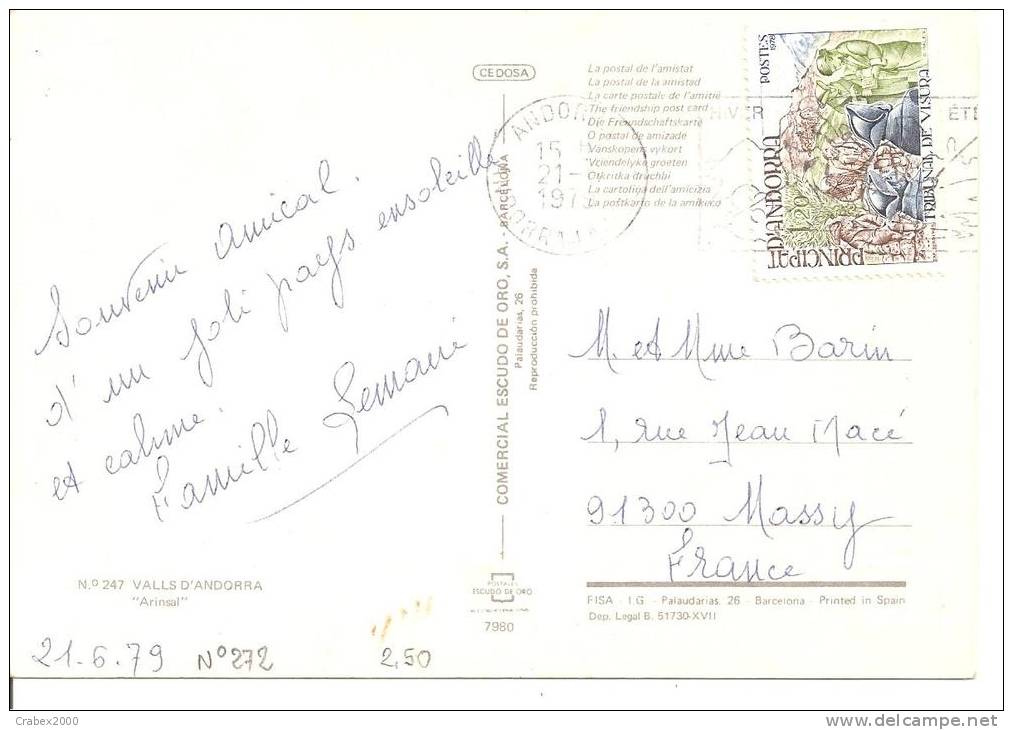 CEDOSA
La postal de l'amistat
La postal de la amistad
La carte postale de l'amitié
The friendship post card
Die Freundschaftskarte
O postal de amizade
Vanskapens vykort
Vriendelyke groeten
Otkritka druchbi
La cartolina dell'amicizia
La postkarto de la amikeco
POSTES
1978
PRINCIPAT
D'ANDORRA
1,20
TRIBUNAL DE VISURA
HIVER
ÉTÉ
15 H
21-
Souvenir amical.
d'un joli pays ensoleillé
et calme.
Famille Lemarié
M. et Mme Barin
1, rue Jean Macé
91300 Massy
France
COMERCIAL ESCUDO DE ORO, S.A. - BARCELONA
Palaudarias, 26
Reproducción prohibida
N.º 247 VALLS D'ANDORRA
"Arinsal"
POSTALES
ESCUDO DE ORO
7980
FISA - I.G. - Palaudarias, 26 - Barcelona - Printed in Spain
Dep. Legal B. 51730-XVII
21.6.79 N°272 2,50
Crabex2000
delcampe.net